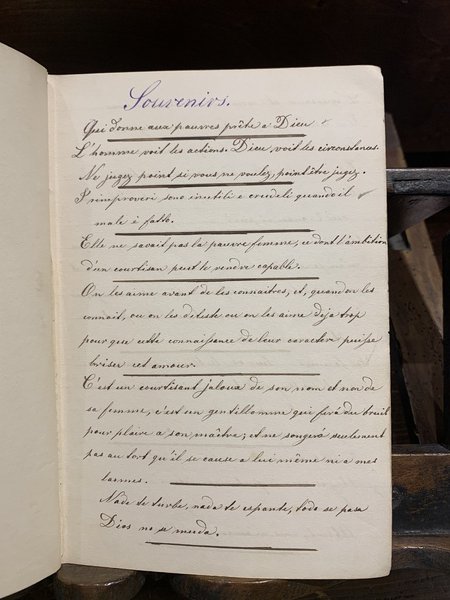 Souvenirs.
Qui donne aux pauvres prête a Dieu
L'homme voit les actions. Dieu voit les circonstances.
Ne jugez point si vous ne voulez point être jugez.
I rimproveri sono inutili e crudeli quando il
male è fatto.
Elle ne savait pas la pauvre femme, ce dont l'ambition
d'un courtisan peut le rendre capable.
On les aime avant de les connaitres, et, quand on les
connait, ou on les déteste ou on les aime deja trop
pour que cette connaissance de leur caractere puisse
briser cet amour.
C'est un courtisant jaloux de son nom et non de
sa femme, c'est un gentilhomme qui fera du
pour plaire a son maître; et ne songerá seulement
pas au tort qu'il se cause a lui même ni a mes
larmes.
Nade te turbe, nada te espante, todo se pasa
Dios no se muda.